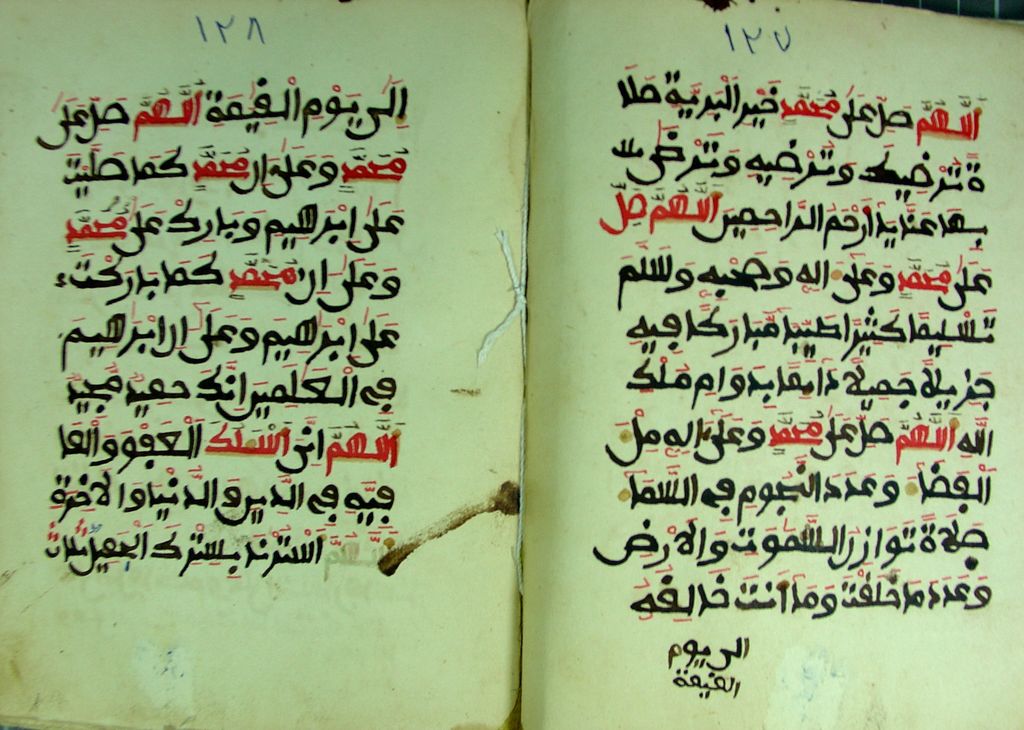 ١٢٧
اللهم صل على محمد خير البرية صلا
ة ترضيك وترضيه وترضى
بها عنا يا أرحم الراحمين اللهم صل
على محمد وعلى اله وصحبه وسلم
تسليما كثيرا طيبا مباركا فيه
جزيلا جميلا دائما بدوام ملك
الله اللهم صل على محمد وعلى اله مل
الفضا وعدد النجوم في السما
صلاة توازن السموت والأرض
وعدد ما خلقت وما أنت خالقه
الى يوم
القيمة
١٢٨
إلى يوم القيمة اللهم صل على
محمد وعلى ال محمد كما صليت
على ابرهيم وبارك على محمد
وعلى ال محمد كما باركت
على ابرهيم وعلى ال ابرهيم
في العلمين انك حميد مجيد
اللهم اني اسلك العفو والعا
فية في الدين والدنيا والاخرة
استرنا بسترك الجميل